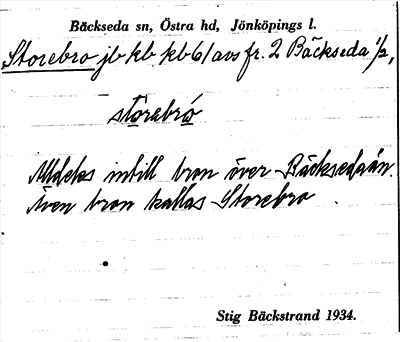 Bäckseda sn, Östra hd, Jönköpings l.
Storebro jb kb kb61 avs fr. 2 Bäckseda 1/2,
stōrebrō
Alldeles intill bron över Bäcksedaån.
Även bron kallas Storebro.
Stig Bäckstrand 1934.